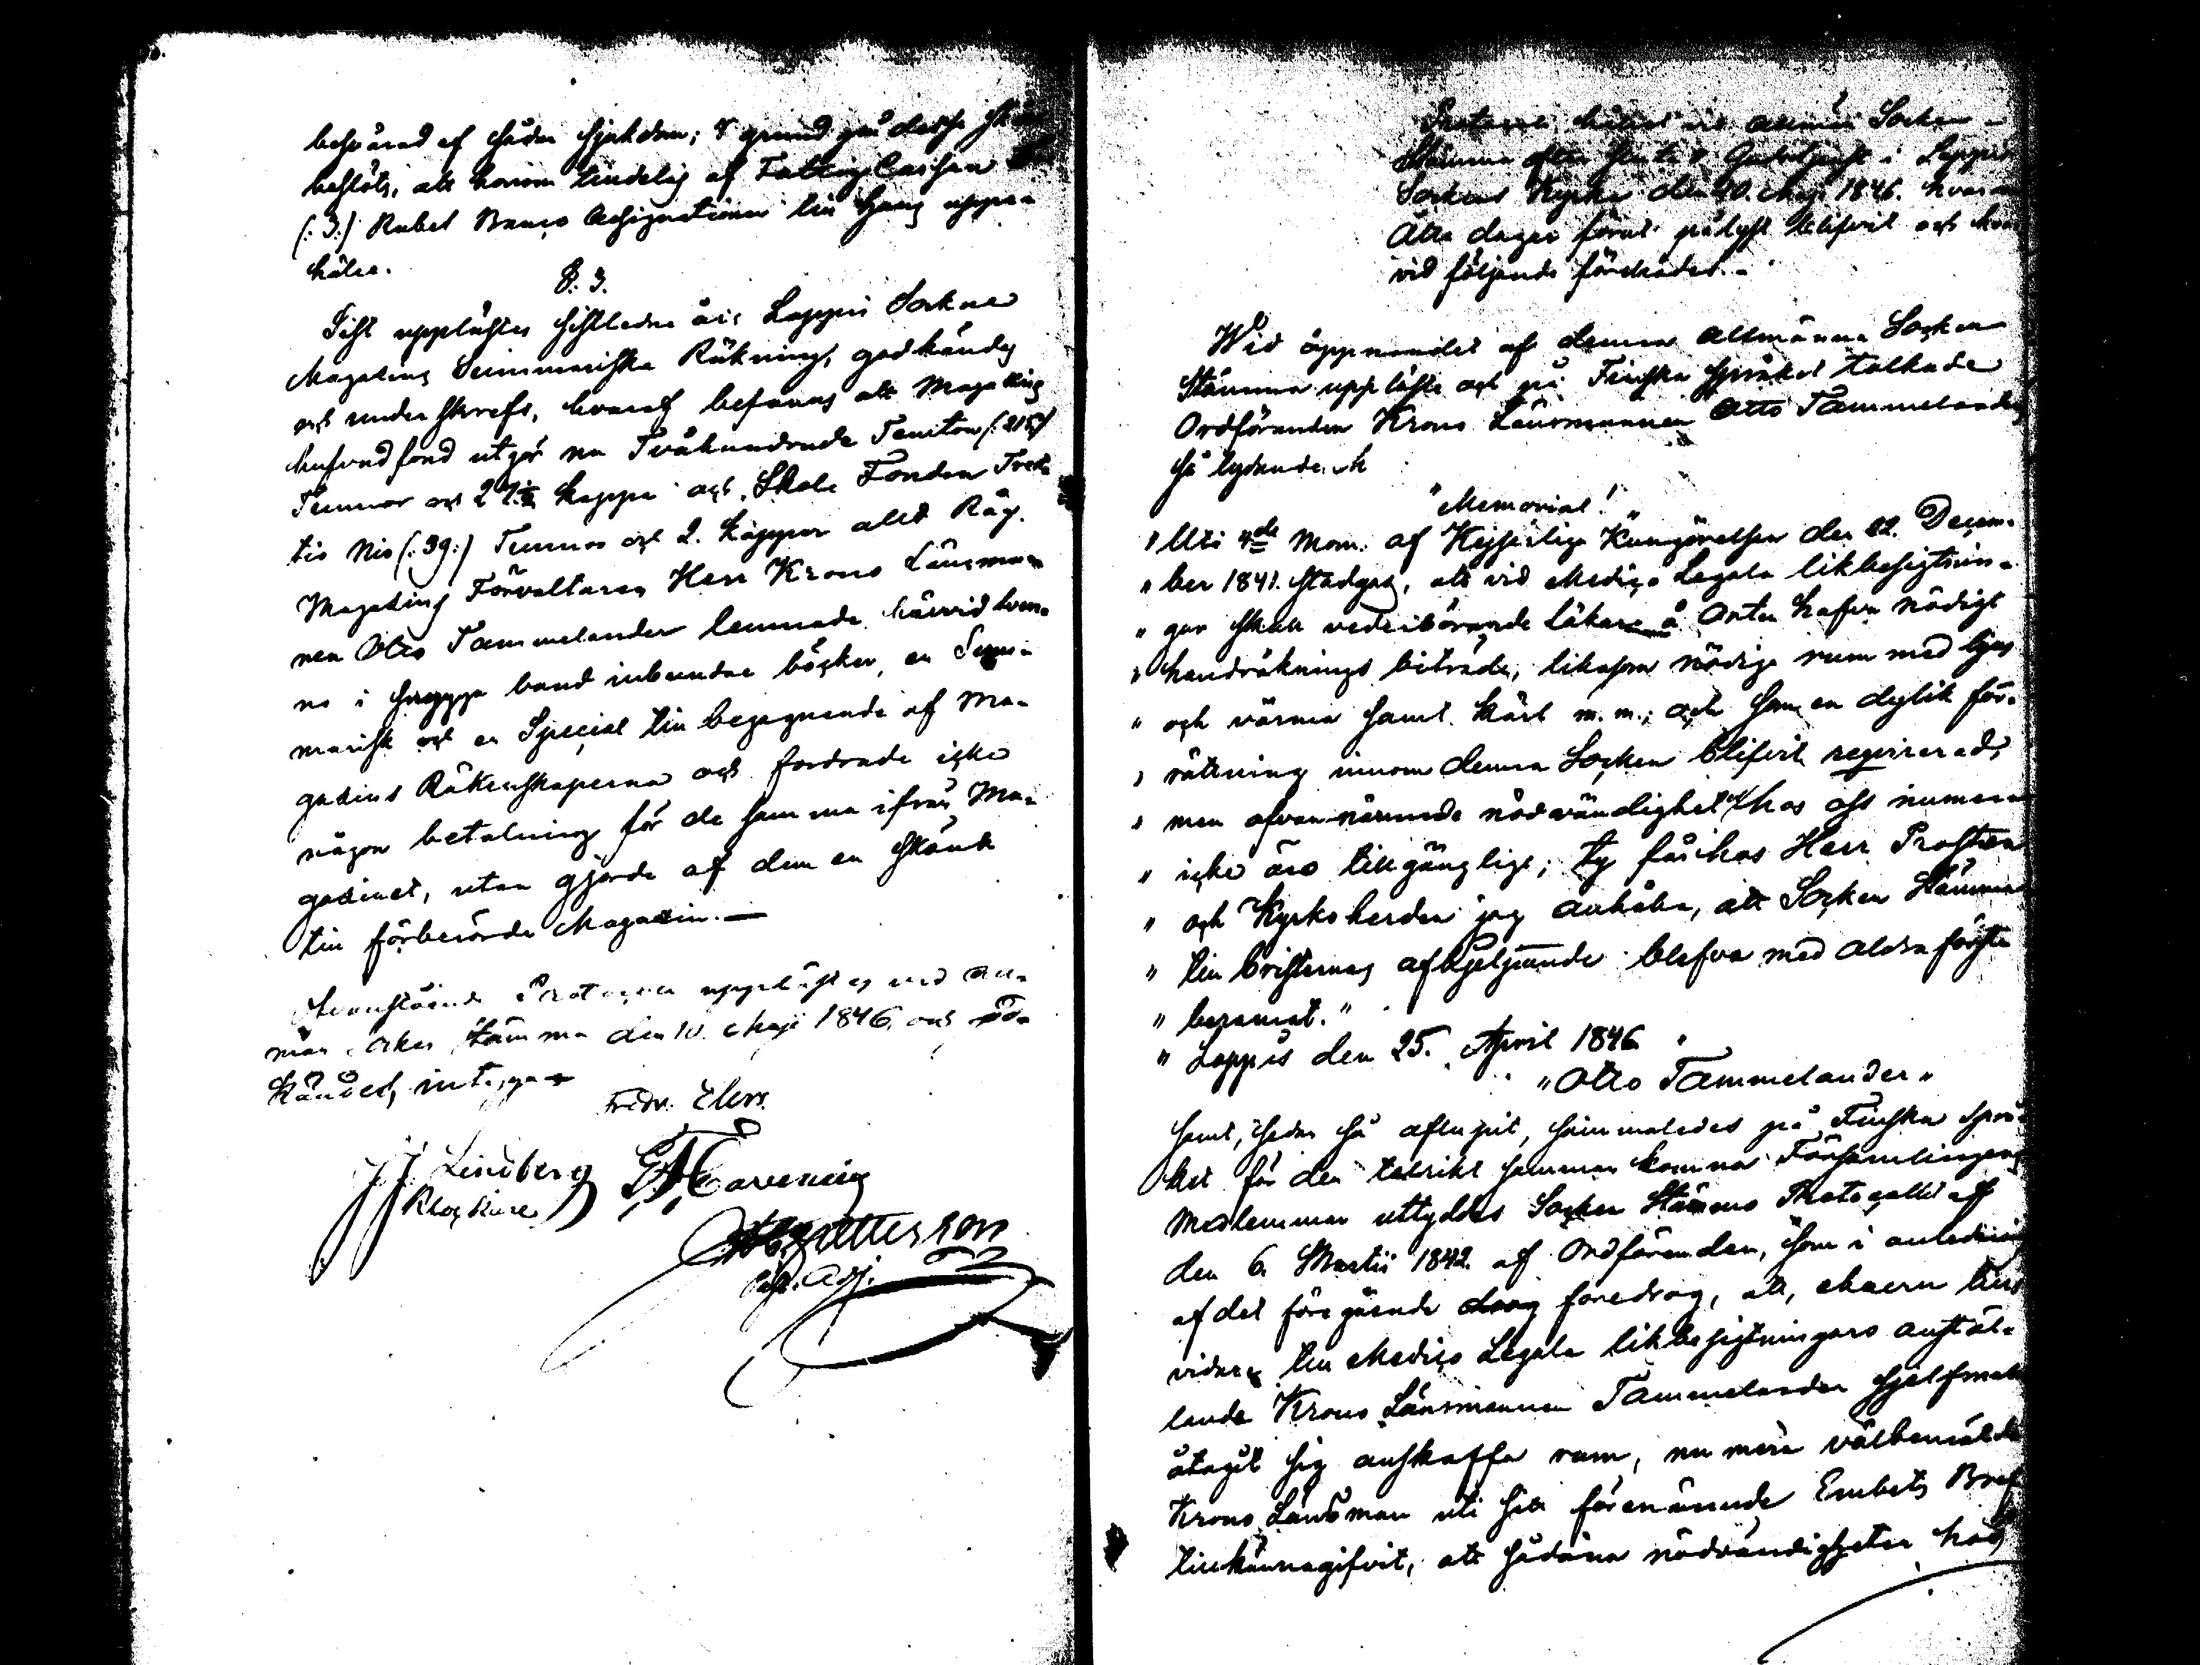 besvärad af sådan sjukdom; i grund på dessa skäl
beslöts, att honom tilldelas af Fattig Cassan
(:3:) Rubel Banco Assignationer till hans uppe-
hälle.
§. 3.
Sist upplästes sistledne års Loppis Sockne
Magasins Summariska Räkning, godkändes
och underskrefs, hvaraf befanns att Magasins
hufvudfond utgör nu Tvåhundrade Femton (:215:)
Tunnor och 27.½ kappe och Skole Fonden Tret-
tio Nio (:39:) Tunnor och 2. kappor allt Råg.
Magasins Förvaltaren Herr Krono Länsman-
nen Otto Tammelander lemnade härvid tven-
ne i band inbundne böcker, en Sum-
marisk och en Special till begagnande af Ma-
gasins Räkenskaperna och fordrade icke
någon betalning för de samma ifrån Ma-
gasinet, utan gjorde af dem en skänk
till förberörde Magasin.—
Ofvanstående Protocoll upplästes vid All-
män Socken Stämma den 10. Maji 1846, och god-
kändes, intygar
Fredr. Elers
J. J. Lindberg
Klockare
Adj.
Protocoll hållit vid allmän Socken
Stämma efter slutad Gudstjenst i Loppis
Sockens Kyrka den 10. Maji 1846. hvarom
Åtta dagar förut pålyst blifvit och hvar-
vid följande förehades.-
Wid öppnandet af denna Allmänna Socken
Stämma uppläste och på Finska språket tolkade
Ordföranden Krono Länsmannen Otto Tammelanders
så lydande
"Memorial!"
" Uti 4de Mom. af Kejserliga Kungörelsen den 22. Decem-
" ber 1841. stadgas, att vid Medico Legala likbesigtnin-
" gar skall vederbörande Läkare å Orten hafva nödigt
" handräknings biträde, likasom nödiga rum med ljus
" och värma samt kärl m.m.; och som en dylik för-
" rättning innom denna Socken blifvit requirerad,
" men ofvannämnde nödvändighet hos oss numera
" icke äro tillgänglige; Ty får hos Herr Prosten
" och Kyrkoherden jag anhålla, att Socken Stämma
" till bristernas afhjelpande blefve med aldraförsta
" beramat."
" Loppis den 25. April 1846 "
"Otto Tammelander"
Samt, sedan så aflupit, sammaledes på Finska språ-
ket för den talrikt sammankomna Församlingens
Medlemmar uttyddes Socken Stämmo Protocollet af
den 6. Martii 1842. af Ordföranden, som i anledning
af det föregående föredrog, att, ehuru tills
vidare till Medico Legala likbesigtningars anstäl-
lande Krono Länsmannen Tammelander sjelfmant
åtagit sig anskaffa rum, nu mera välbemälde
Krono Länsman uti sitt förenämnde Embets Bref
tillkännagifvit, att sådana nödvändigheter hos